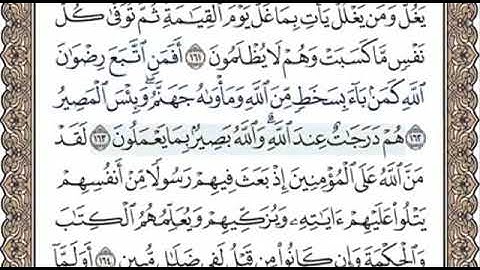 يَغُلَّ وَمَن يَغْلُلْ يَأْتِ بِمَا غَلَّ يَوْمَ ٱلْقِيَٰمَةِ ثُمَّ تُوَفَّىٰ كُلُّ
نَفْسٍ مَّا كَسَبَتْ وَهُمْ لَا يُظْلَمُونَ ١٦١ أَفَمَنِ ٱتَّبَعَ رِضْوَٰنَ
ٱللَّهِ كَمَنۢ بَآءَ بِسَخَطٍ مِّنَ ٱللَّهِ وَمَأْوَىٰهُ جَهَنَّمُ ۚ وَبِئْسَ ٱلْمَصِيرُ
١٦٢ هُمْ دَرَجَٰتٌ عِندَ ٱللَّهِ ۗ وَٱللَّهُ بَصِيرٌۢ بِمَا يَعْمَلُونَ ١٦٣ لَقَدْ
مَنَّ ٱللَّهُ عَلَى ٱلْمُؤْمِنِينَ إِذْ بَعَثَ فِيهِمْ رَسُولًا مِّنْ أَنفُسِهِمْ
يَتْلُوا۟ عَلَيْهِمْ ءَايَٰتِهِۦ وَيُزَكِّيهِمْ وَيُعَلِّمُهُمُ ٱلْكِتَٰبَ
وَٱلْحِكْمَةَ وَإِن كَانُوا۟ مِن قَبْلُ لَفِى ضَلَٰلٍ مُّبِينٍ ١٦٤ أَوَلَمَّآ